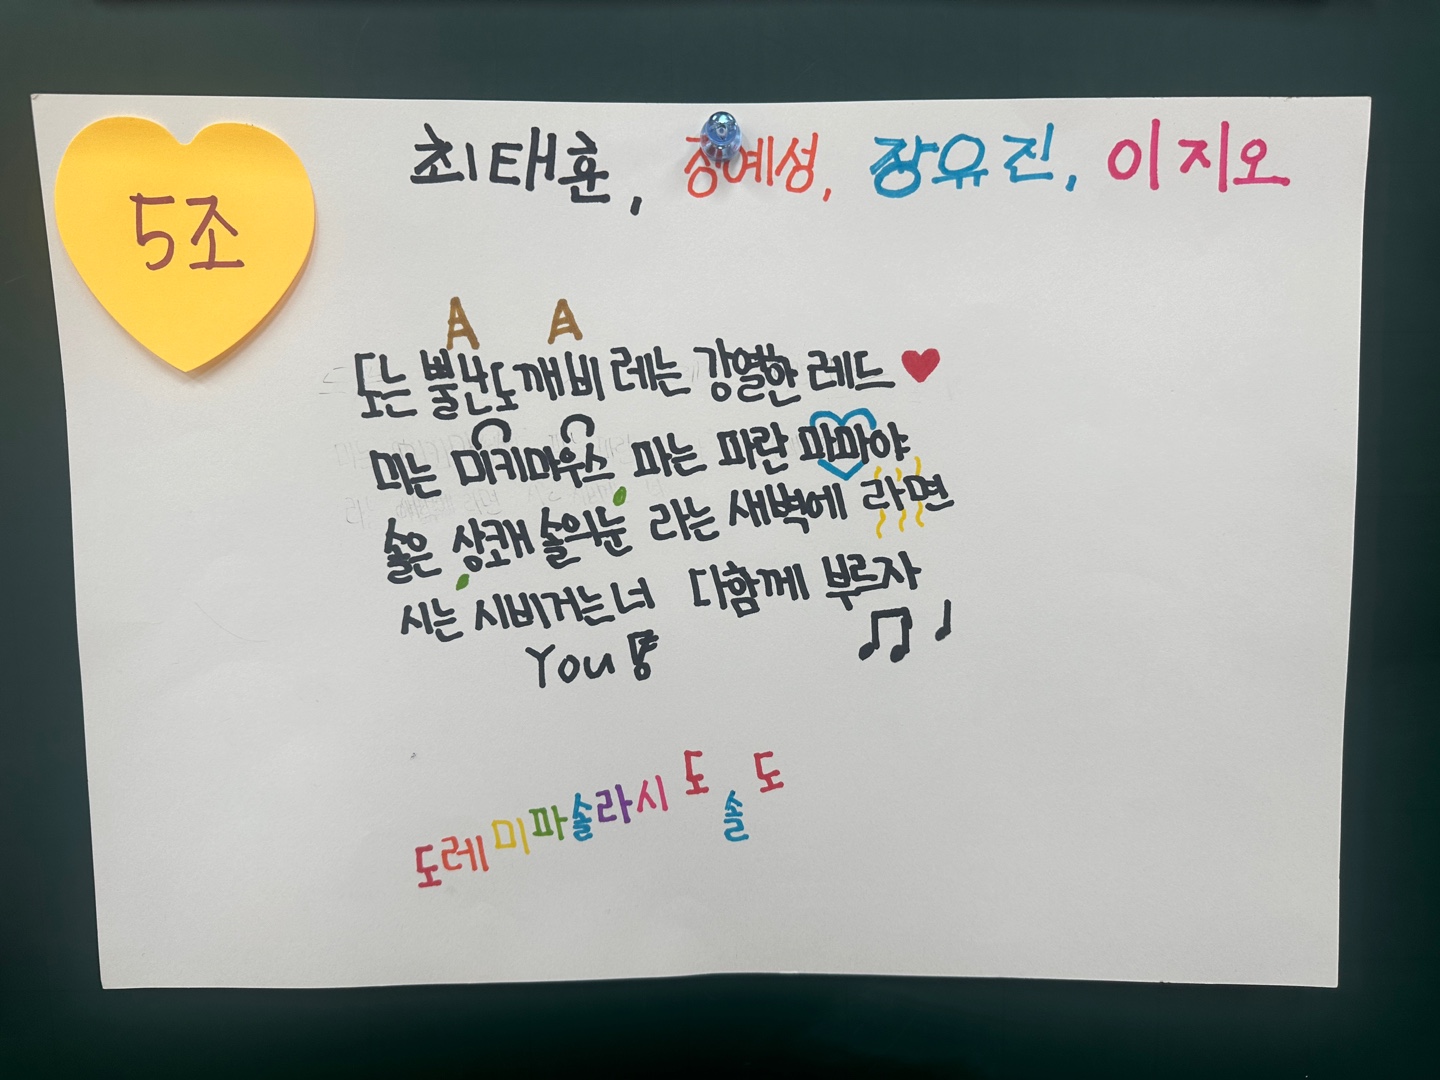 5조
최태훈, 장예성, 장유진, 이지오
도는 뿔난도깨비 레는 강열한 레드
미는 미키마우스 파는 파란 마마야
솔은 상쾌 솔의눈 라는 새벽에 라면
시는 시비거는너 다함께 부르자
You
도레미파솔라시도솔도